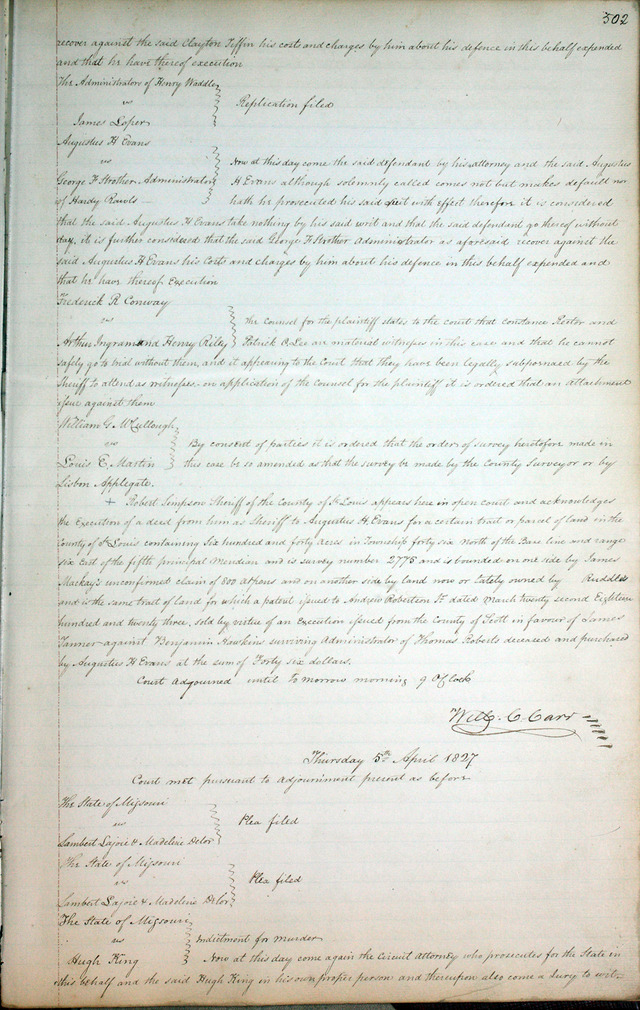 302
recover against the said Clayton Tiffin his costs and charges by him about his defence in this behalf expended
and that he have thereof execution
The Administrators of Henry Waddle
vs
Replication filed
James Loper
Augustus H Evans
vs
Now at this day come the said defendant by his attorney and the said Augustus
George F Strother Administrator
H Evans although solemnly called comes not but makes default nor
of Hardy Rawls
hath he prosecuted his said suit with effect therefore it is considered
that the said Augustus H Evans take nothing by his said writ and that the said defendant go thereof without
day, it is further considered that the said George F Strother Administrator as aforesaid recover against the
said Augustus H Evans his costs and charges by him about his defence in this behalf expended and
that he have thereof Execution
Frederick R Conway
vs
the Counsel for the plaintiff states to the court that Constance Rector and
Arthur Ingram and Henry Riley
Patrick R Lee are material witnesses in this case and that he cannot
safely go to trial without them, and it appearing to the Court that they have been legally subpoenaed by the
Sheriff to attend as witnesses. on application of the Counsel for the plaintiff it is ordered that an attachment
issue against them
William G. McCullough
vs
By consent of parties it is ordered that the order of survey heretofore made in
Louis E. Martin
this case be so amended as that the survey be made by the County Surveyor or by
Lisbon Applegate.
+ Robert Simpson Sheriff of the County of St Louis appears here in open court and acknowledges
the Execution of a deed from him as Sheriff to Augustus H. Evans for a certain tract or parcel of land in the
County of St Louis containing Six hundred and forty acres in Township forty six North of the Base line and range
six East of the fifth principal Meridian and is survey number 2775 and is bounded on one side by James
Mackay's unconfirmed claim of 800 arpens and on another side by land now or lately owned by Ruddles
and is the same tract of land for which a patent issued to Andrew Robertson Sr. dated March twenty second Eighteen
hundred and twenty three, sold by virtue of an Execution issued from the County of Scott in favour of James
Tanner against Benjamin Hawkins surviving Administrator of Thomas Roberts deceased and purchased
by Augustus H Evans at the sum of Forty six dollars.
Court adjourned until to morrow morning 9 O'Clock
Will. C Carr
Thursday 5th April 1827
Court met pursuant to adjournment present as before
The State of Missouri
vs
Plea filed
Lambert Lajoie & Madeline Delor
The State of Missouri
vs
Plea filed
Lambert Lajoie & Madeline Delor
The State of Missouri
vs
Indictment for murder
Hugh King
Now at this day come again the Circuit Attorney who prosecutes for the State in
this behalf and the said Hugh King in his own proper person and thereupon also come a Jury to wit-